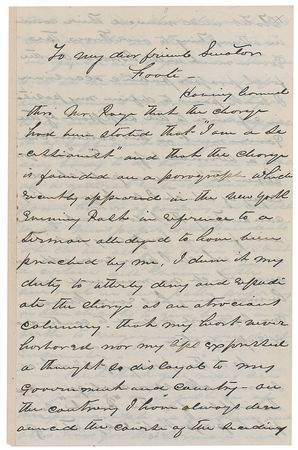 To my dear friend Senator
Foote -
Having learned
thro. Mr. that the charge
had been started that "I am a Se-
cessionist" and that the charge
is founded on a paragraph which
recently appeared in the New York
Evening Post in reference to a
Sermon alledged to have been
preached by me, I deem it my
duty to utterly deny and repudi
ate the charge as an atrocious
calumny - that my heart never
harbored nor my lips expressed
a thought so disloyal to my
Government and country - on
the contrary I have always den
ounced the course of the seceding